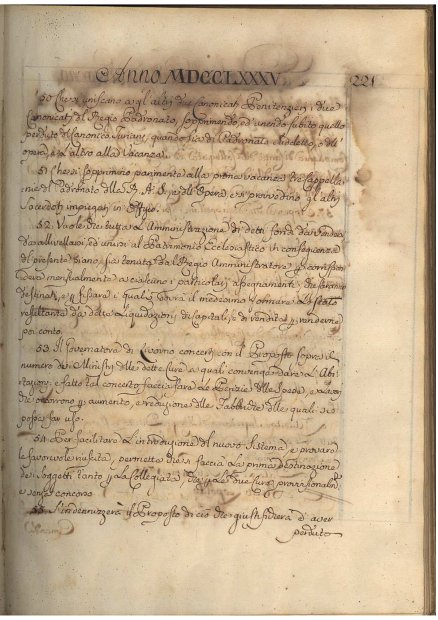 Anno MDCCLXXXV.
221
50 Che si uniscano agl'altri due Canonicati Penitenzieri i due
Canonicati di Regio Padronato, sopprimendo ed unendo subito quello
perduto di Canonico quando sia di Padronato Suddetto, o di
opera, e l'altro alla Vacanza.
51 Che si sopprimino parimente alla prima vacanza tre Cappella
nie di Padronato della R. A. S. e dell'Opera, e si provvedino gl'altri
Sacerdoti impiegati in
52. Vuole che tutta l'Amministrazione di detti fondi da vendersi
da allivellarsi, ed unirsi al Patrimonio Ecclesiastico in conseguenza
del presente piano, sia tenuta dal Regio Amministratore
dovrà mensualmente a ciascuno i particolari assegnamenti che saranno
destinati, e quali dovrà il medesimo formare lo stato
resultante da dette Liquidazioni di Capitali, e di vendite, e renderne
poi conto.
53. Il Governatore di Livorno concerti con il Proposto sopra il
numero dei Ministri delle dette Cure a quali convenga dare l'Abi
tazione; e fatto tal concerto faccia fare le Perizie delle Spese, e
che occorrono aumento, e reduzione delle Fabbriche delle quali si
possa far uso.
54. Per facilitare l'introduzione del nuovo Sistema, e provare
la favorevole riuscita, permette che si faccia la prima destinazione
dei Soggetti tanto per la Collegiata che per le due Cure provvisionalm.
e senza concorso
55. S'indennizzerà il Proposto di ciò che giustificherà d'aver
perduto